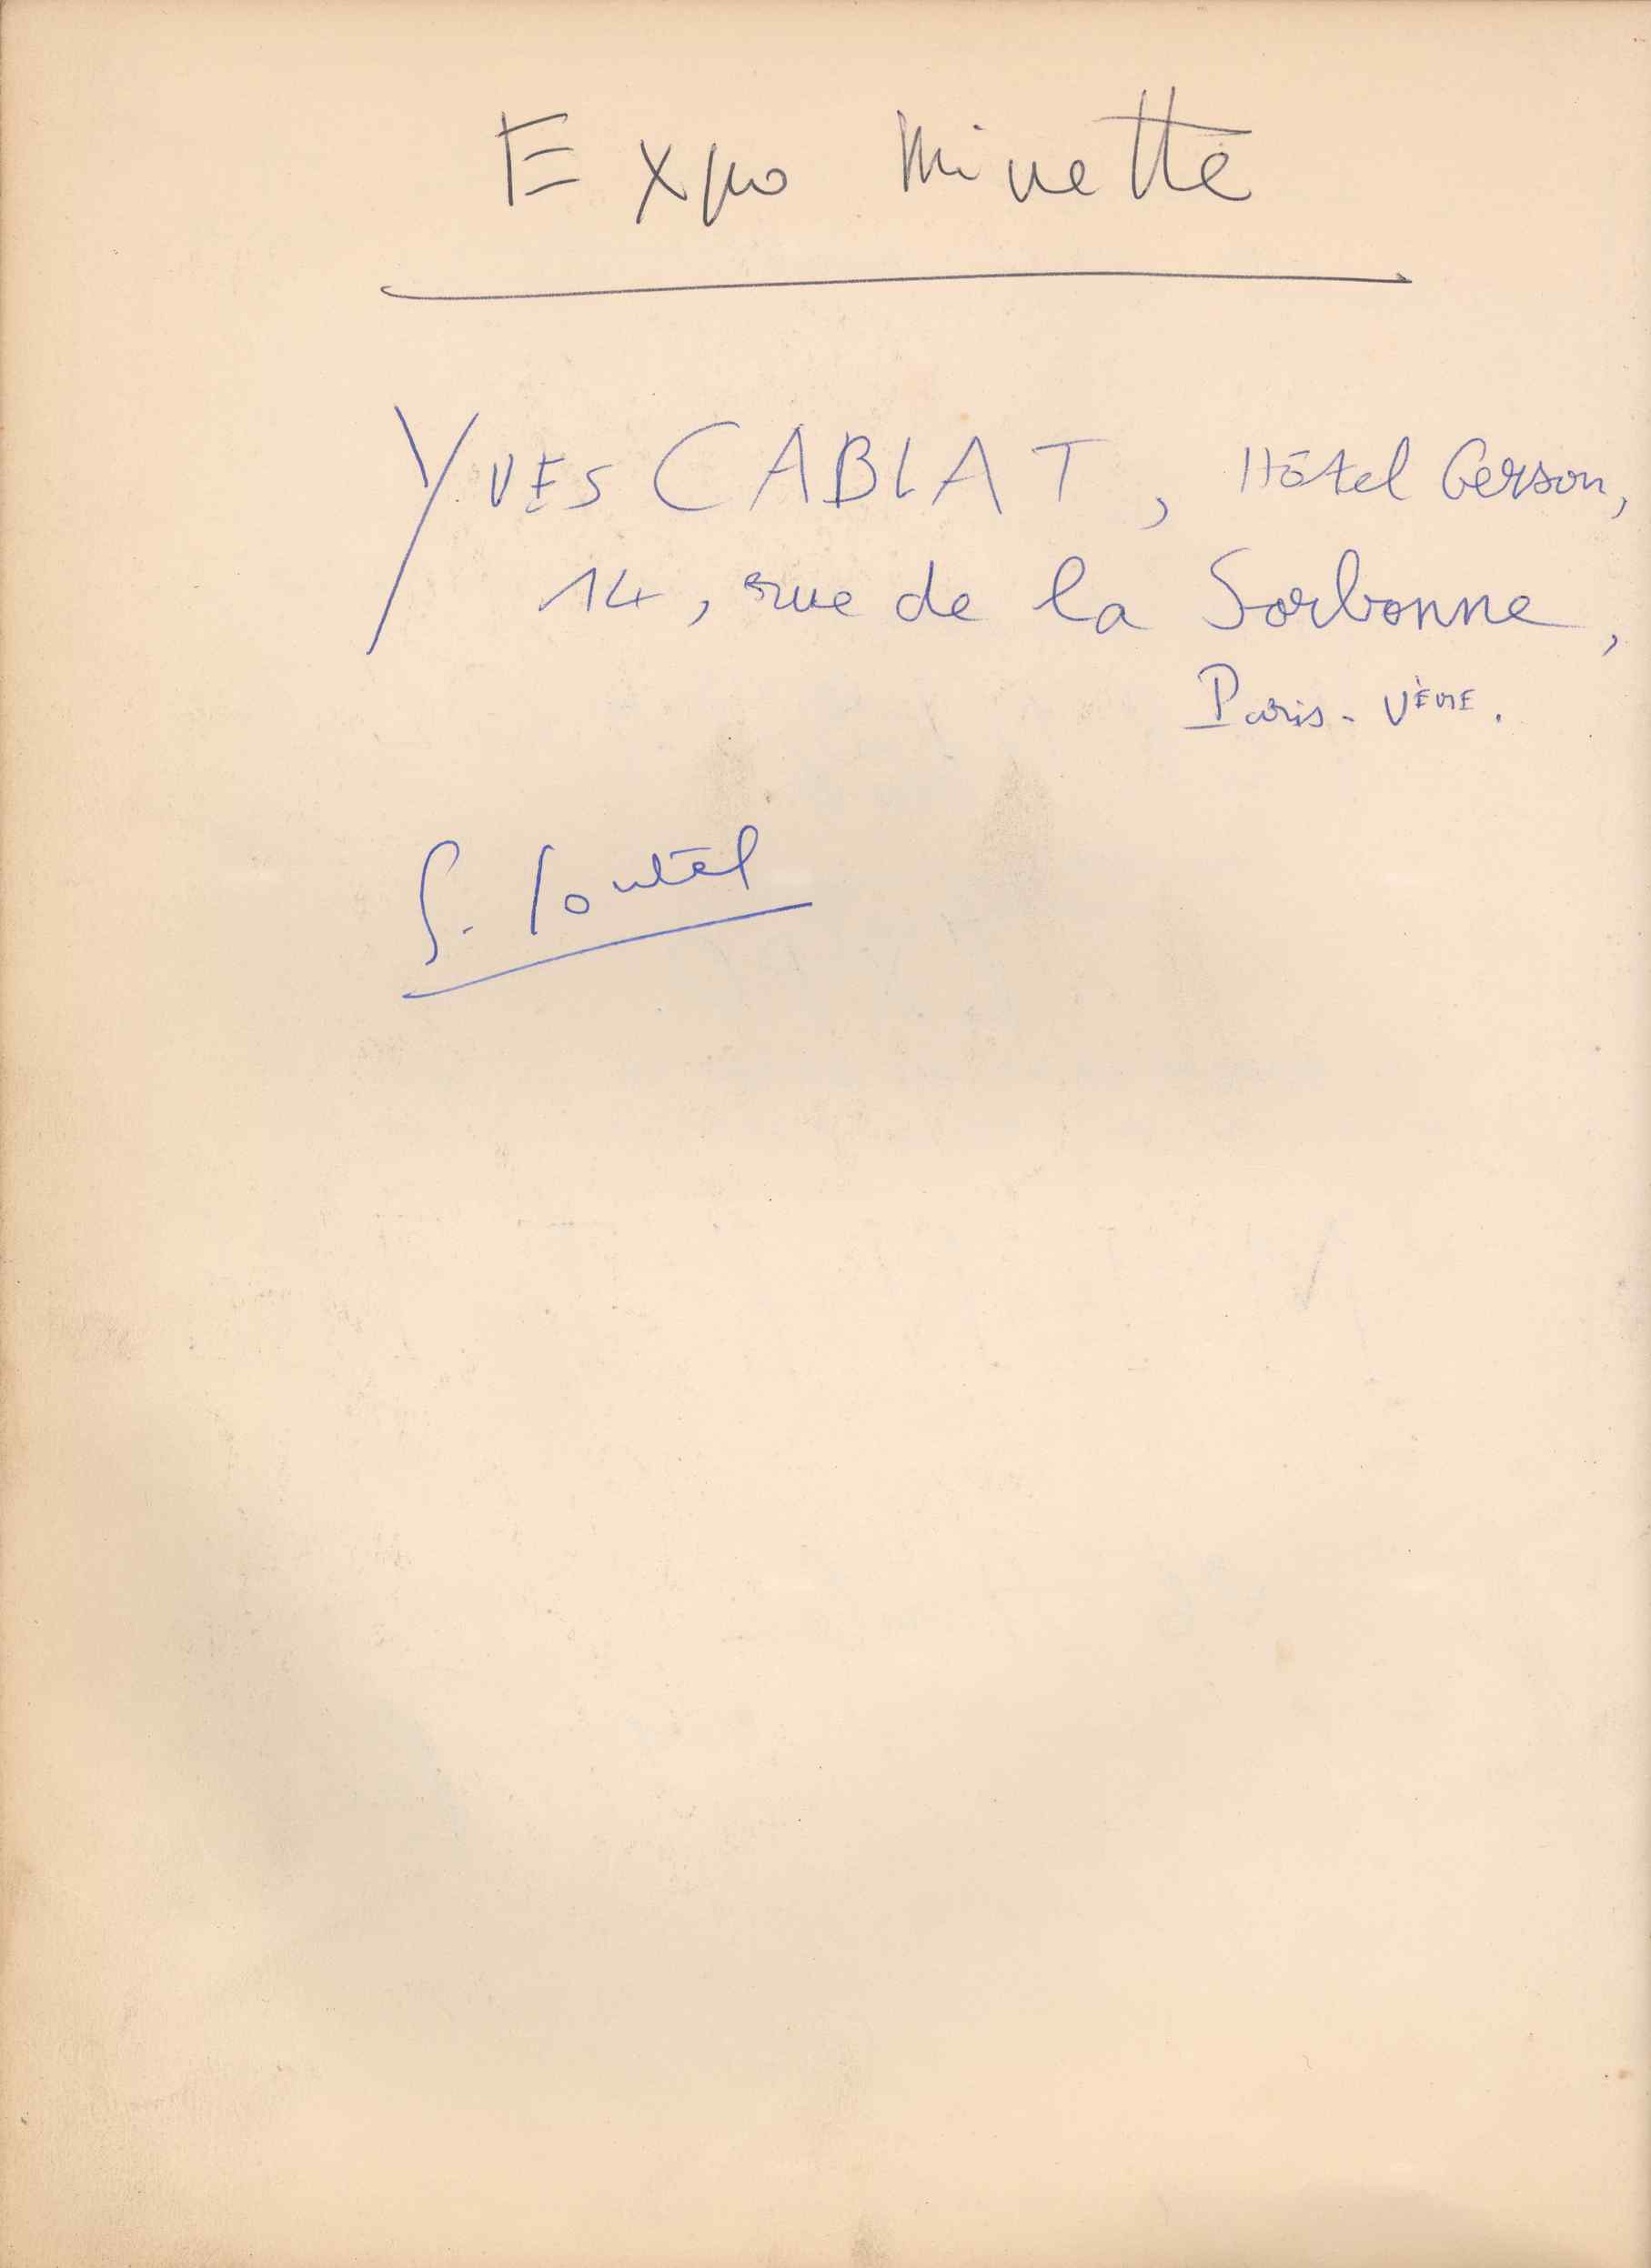 Expo Minette
YVES CABLAT, Hôtel Gerson,
14, rue de la Sorbonne,
Paris - VÈME.